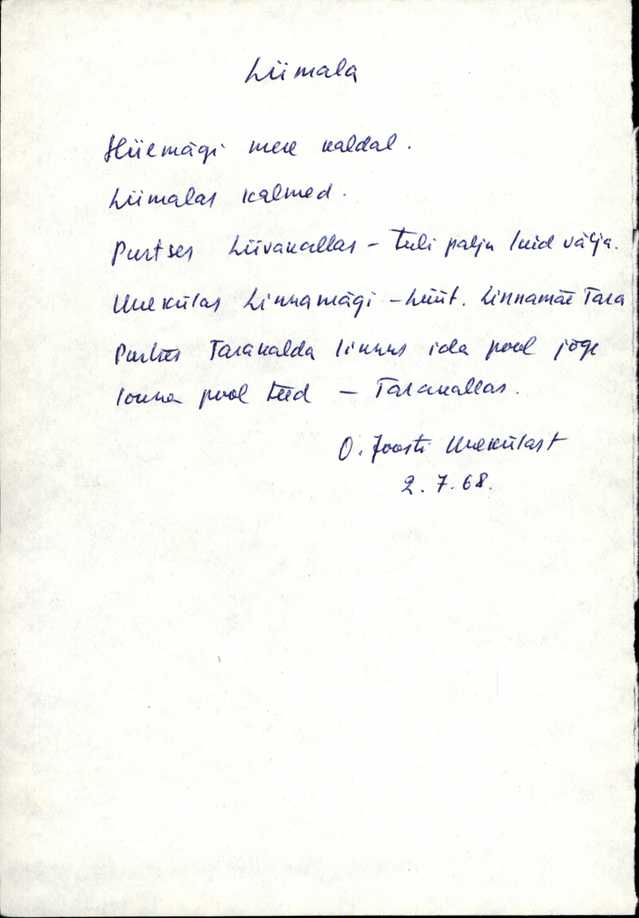 Liimala
Hiiemägi mere kaldal.
Liimalas kalmed.
Purtses Liivakallas - tuli palju luid välja.
Unekülas Linnamägi - hüüt. Linnamäe Tara
Purtses Tarakalda linnus ida pool jõge
louna pool teed - Tarakallas.
O. Joosti Unekülast
2.7.68.